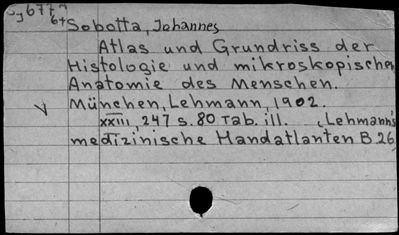 Sobotta, Johannes
Atlas und Grundriss der
Histologie und mikroskopischen
Anatomie des Menschen.
München, Lehmann, 1902.
XXIII, 247 s. 80 Tab. ill. (Lehmann's
medizinische Handatlanten B 26